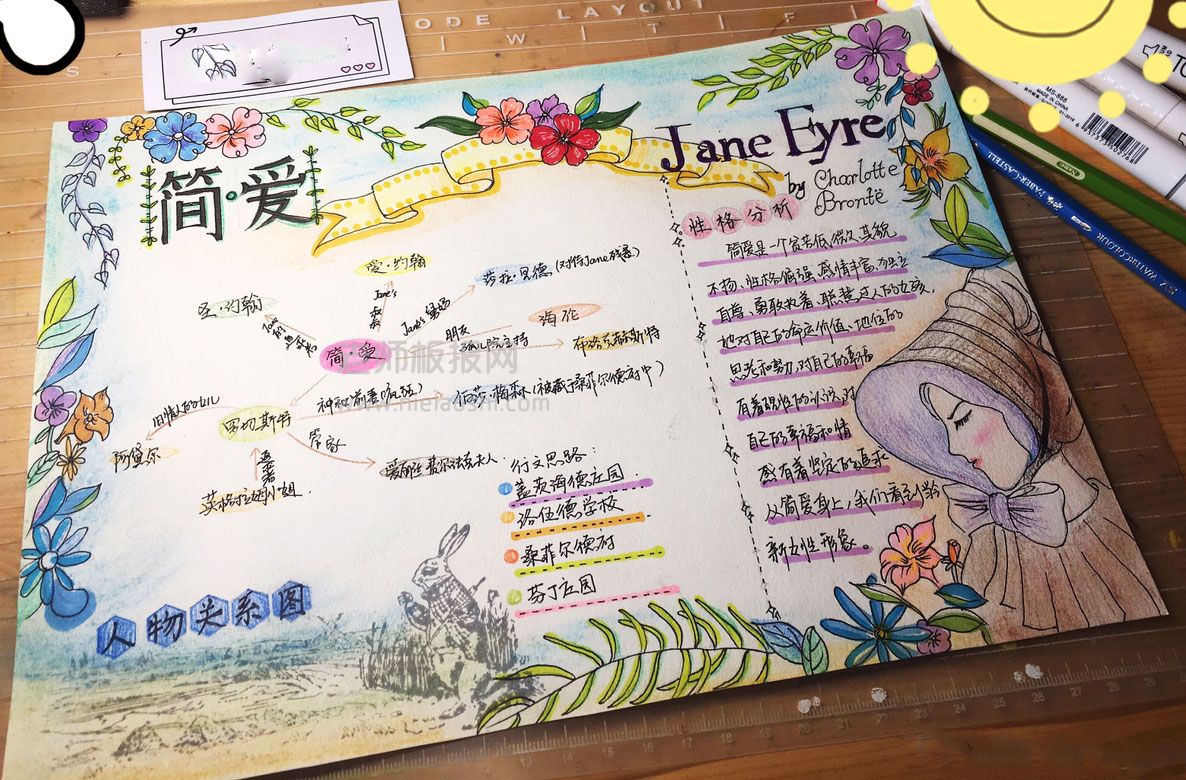 ODE LAYOUT
简·爱
Jane Eyre
by Charlotte
Brontë
性格分析
简爱是一个贫苦低微、其貌
不扬、性格倔强、感情丰富、独立
自尊、勇敢执着、聪慧过人的女孩。
她对自己的命运、价值、地位的
思考和努力,对自己的幸福
有着理性的认识,对
自己的幸福和情
感有着坚定的追求
从简爱身上,我们看到
新女性形象
爱·约翰
圣·约翰
Jane's
Jane's 舅妈
里德(对待Jane残暴)
朋友
海伦
孤儿院主持
布洛克赫斯特
简·爱
神秘前妻(疯狂)
伯莎·梅森(被藏于桑菲尔德府中)
旧情人的女儿
罗切斯特
阿黛尔
管家
爱丽丝·费尔法克斯夫人
追求者
英格拉姆小姐.
行文思路:
盖茨海德庄园
洛伍德学校
桑菲尔德府
芬丁庄园
人物关系图
师板报网
www.meiaoshi.com
FABER-CASTELL
WATERCOLOUR